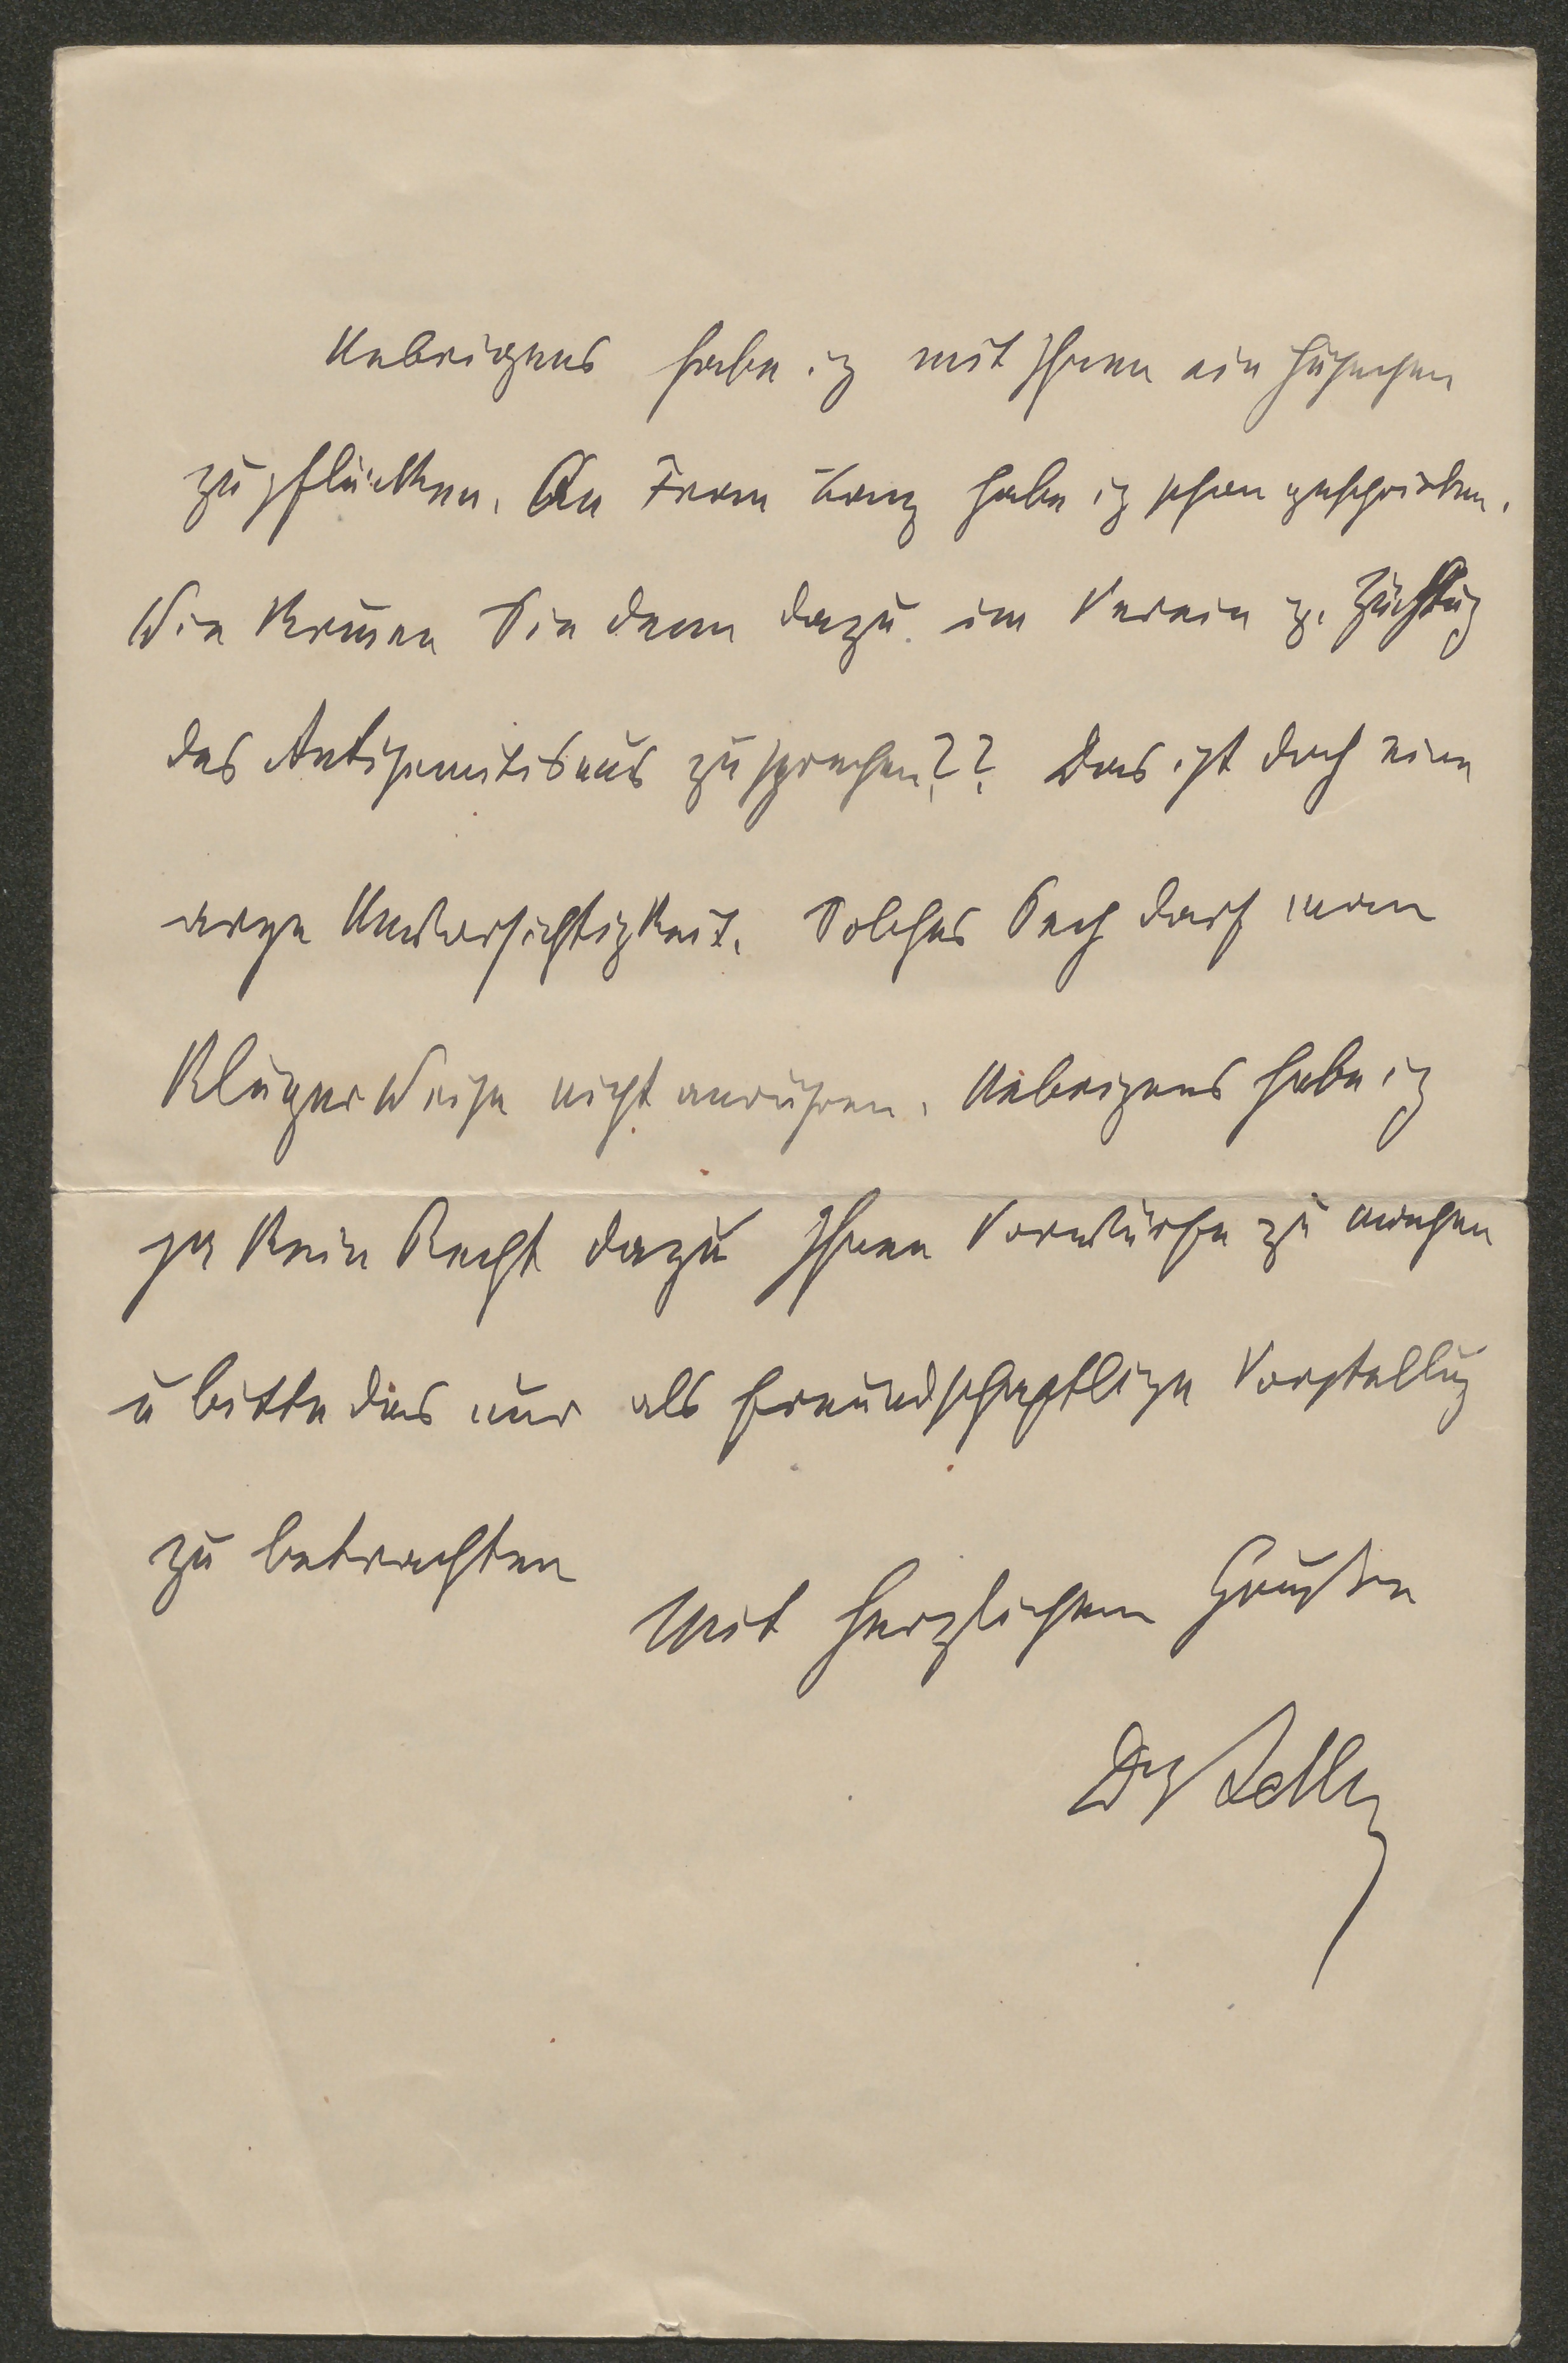 Uebrigens habe ich mit Ihnen ein Hühnchen
zu pflücken. An Frau Lang habe ich schon geschrieben.
Wie kommen Sie denn dazu im Verein z. Züchtug
des Antisemitismus zu sprechen?? Das ist doch eine
arge Unvorsichtigkeit. Solches Pech darf man
klugerweise nicht anrühren. Uebrigens habe ich
ja kein Recht dazu Ihnen Vorwürfe zu machen
u bitte dies nur als freundschaftliche Vorstellug
zu betrachten
Mit herzlichem Grusse
Dr